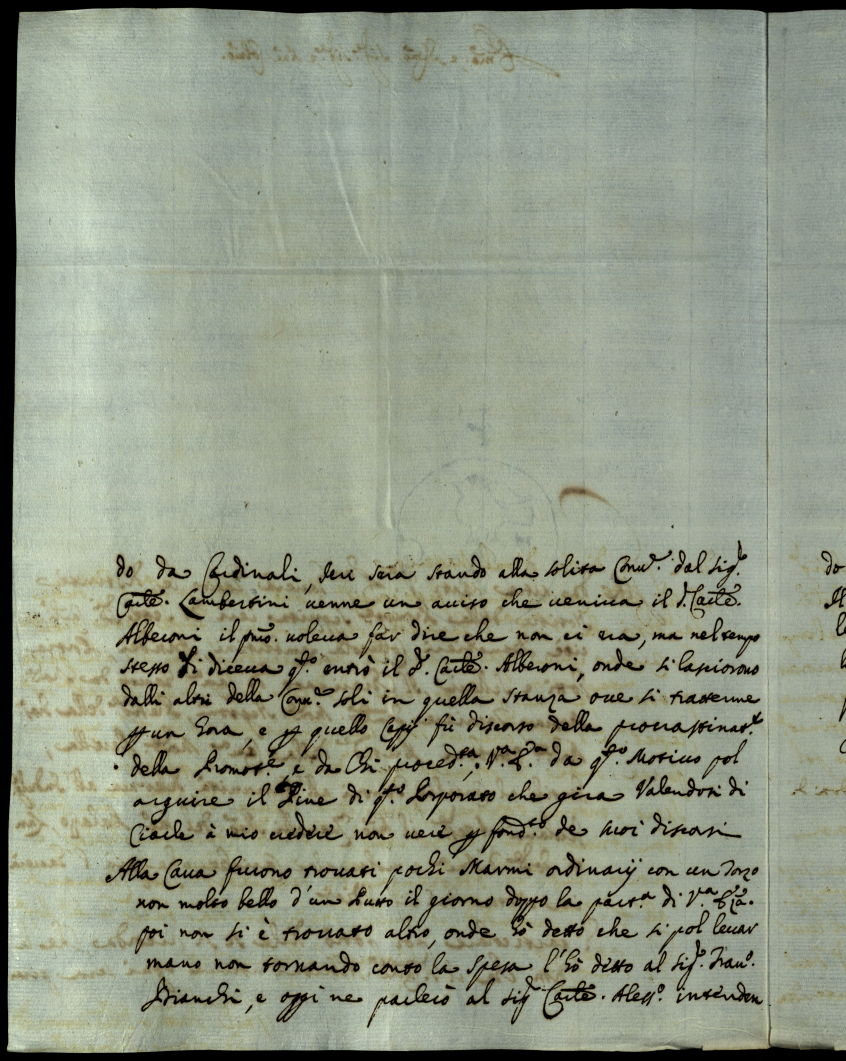 do da Cardinali, Ieri sera stando alla solita Conu.e dal Sig.r
Carle. Lambertini uenne un auiso che ueniua il S.r Carle.
Alberoni il pmo. uoleua far dire che non ci era, ma nel tempo
stesso Si diceua q.to entrò il S.r Carle. Alberoni, onde si lasciorono
dalli altri della Conu.e soli in quella stanza oue si trattenne
p un hora, e p quello Capÿ fù discorso della procrastinat.e
della Promot.e, e da Chi proced.ta; V.a E.a da q.to Motiuo pol
arguire il Fine di q.to Porporato che gira Valendosi di
Ciarle à mio credere non uere p fond.to de suoi discorsi
Alla Caua furono trouati pochi Marmi ordinarÿ con un Torzo
non molto bello d'un Putto il giorno doppo la part.a di V.a E.za.
poi non si è trouato altro, onde hò detto che si pol leuar
mano non tornando conto la Spesa l'hò detto al Sig.r Fran.o
Bianchi, e oggi ne parlerò al Sig.r Carle. Aless.o intenden
do